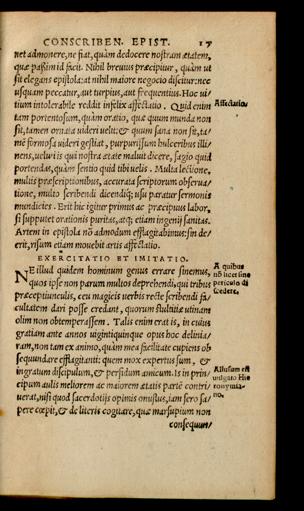 CONSCRIBEN. EPIST. 17
net admonere, ne fiat, quàm dedocere nostram ætatem,
quæ passim id facit. Nihil breuius præcipitur, quàm ut
sit elegans epistola: at nihil maiore negocio discitur: nec
usquam peccatur, aut turpius, aut frequentius. Hoc ui/
tium intolerabile reddit infelix affectatio. Quid enim
tam portentosum, quàm oratio, quæ quum munda non
sit, tamen ornata uideri uelit: & quum sana non sit, ta/
mẽ formosa uideri gestiat, purpurissum hulceribus illi/
nens, uel ut is qui nostra ætate maluit dicere, sagio quid
portendas, quàm sentio quid tibi uelis. Multa lectione,
multis præscriptionibus, accurata scriptorum obserua/
tione, multo scribendi dicendiq́; usu paratur sermonis
mundicies. Erit hic igitur primus ac præcipuus labor,
si suppetet orationis puritas, atq; etiam ingenij sanitas.
Artem in epistola nõ admodum efflagitabimus: sin de/
erit, risum etiam mouebit artis affectatio.
Affectatio.
EXERCITATIO ET IMITATIO.
NE illud quidem hominum genus errare sinemus,
quos ipse non parum multos deprehendi, qui tribus
præceptiunculis, ceu magicis uerbis recte scribendi fa/
cultatem dari posse credant, quorum stultitiæ utinam
olim non obtemperassem. Talis enim erat is, in cuius
gratiam ante annos uigintiquinque opus hoc delinia/
ram, non tam ex animo, quàm mea facilitate cupiens ob
sequundare efflagitanti: quem mox expertus sum, &
ingratum discipulum, & perfidum amicum. Is in prin/
cipum aulis meliorem ac maiorem ætatis partẽ contri/
uerat, nisi quod sacerdotijs opimis onustus, iam sero sa/
pere cœpit, & de literis cogitare, quæ marsupium non
consequun/
A quibus
nõ licet sine
periculo di
scedere.
Allusum est